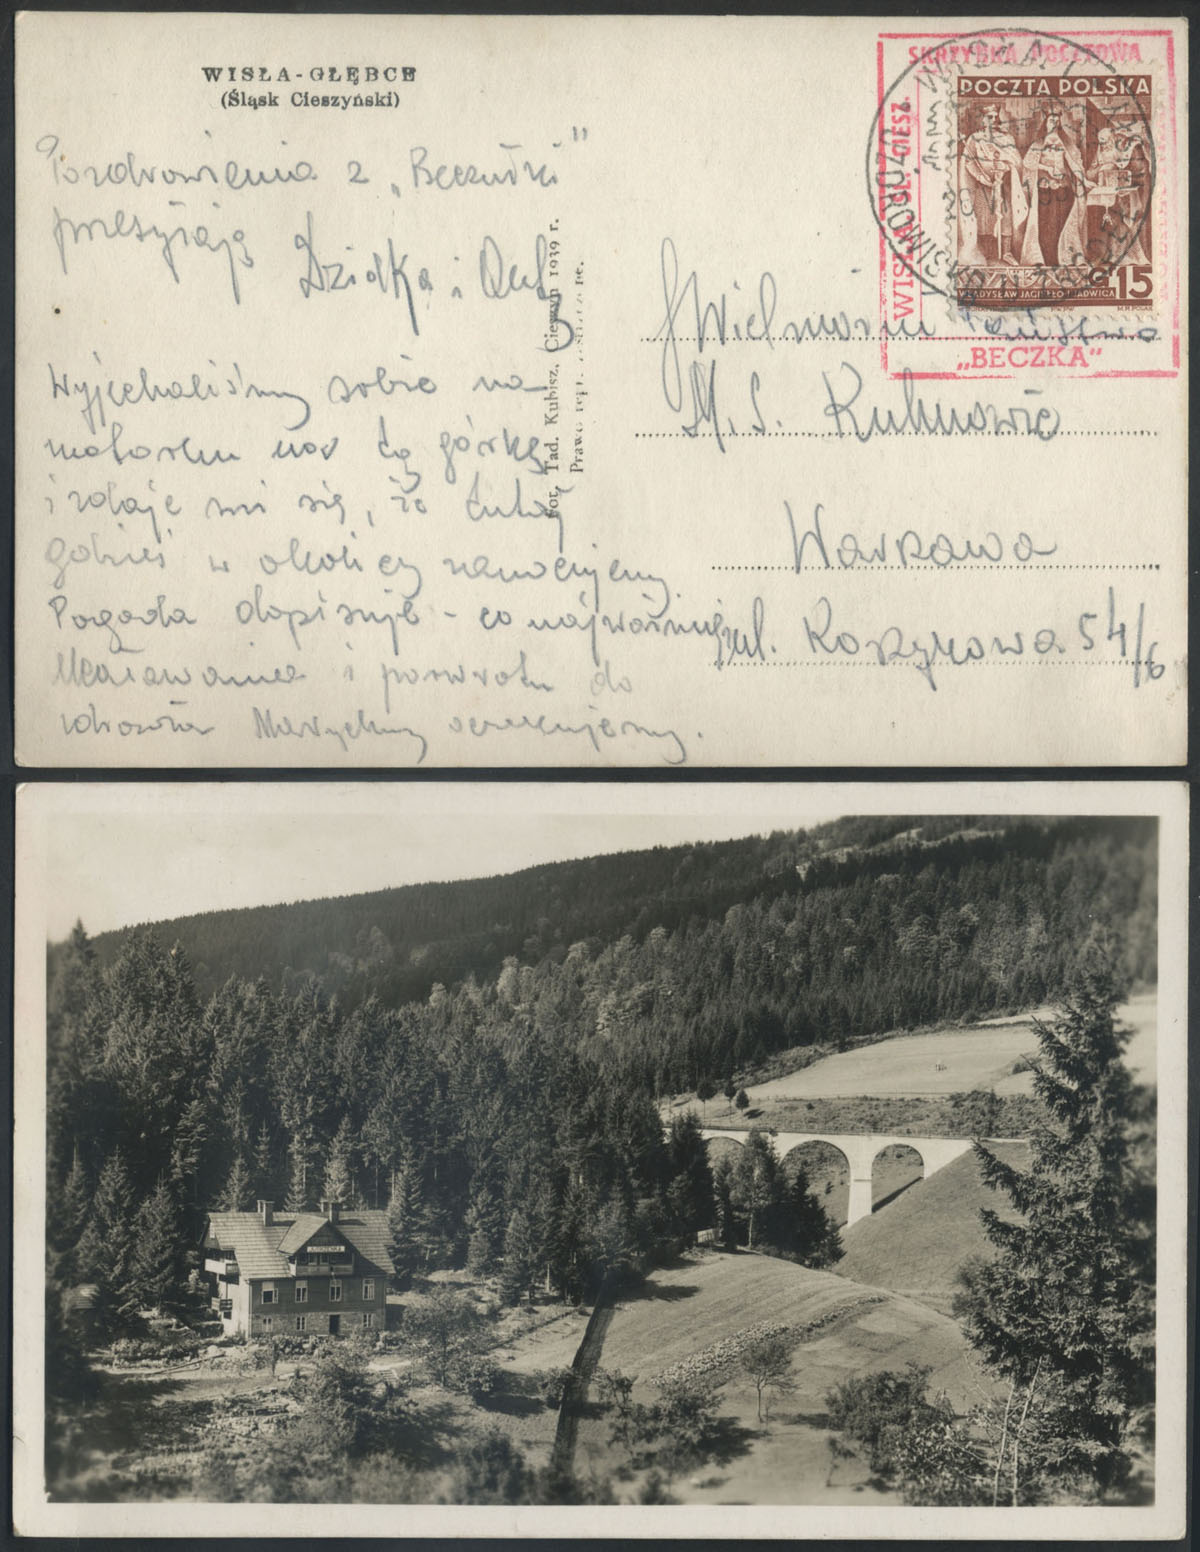 WISŁA-GŁĘBCE
(Śląsk Cieszyński)
Pozdrowienia z „Beczułki”
przesyłają
Dzidka i
Wyjechaliśmy sobie na
motorku na tą górkę
i zdaje mi się, że tutaj
gdzieś w okolicy zanocujemy
Pogoda dopisuje - co najważniejsze
i powrotu do
zdrowia oczekujemy.
Fot. Tad. Kubisz, Cieszyn 1939 r.
Prawo repr.
SKRZYNKA POCZTOWA
WISŁA ŚL. CIESZ.
„BECZKA”
POCZTA POLSKA
GR 15
WŁADYSŁAW JAGIEŁŁO I JADWIGA
WISŁA 1
UZDROWISKO
Wielmożni Państwo
M. S. Kuhnowie
Warszawa
ul. Koszykowa 54/6
JUTRZENKA